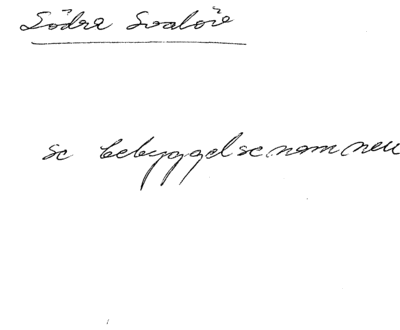 Södra Svalöv
se bebyggelsenamnen